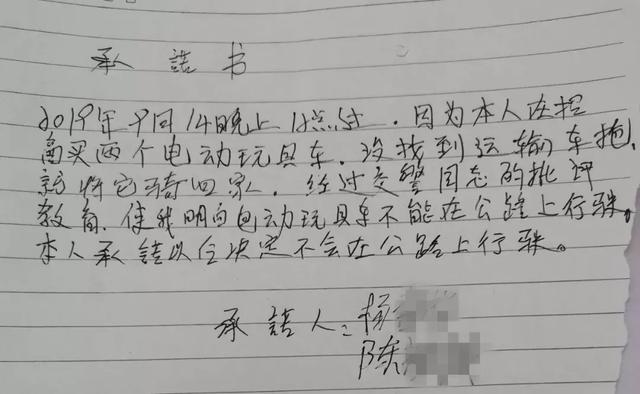 承诺书
2019年9月14晚上12点过，因为本人在
高买两个电动玩具车，没找到运输车拖，
就将它骑回家，经过交警同志的批评
教育，使我明白电动玩具车不能在公路上行驶。
本人承诺以后决定不会在公路上行驶。
承诺人：杨
陈